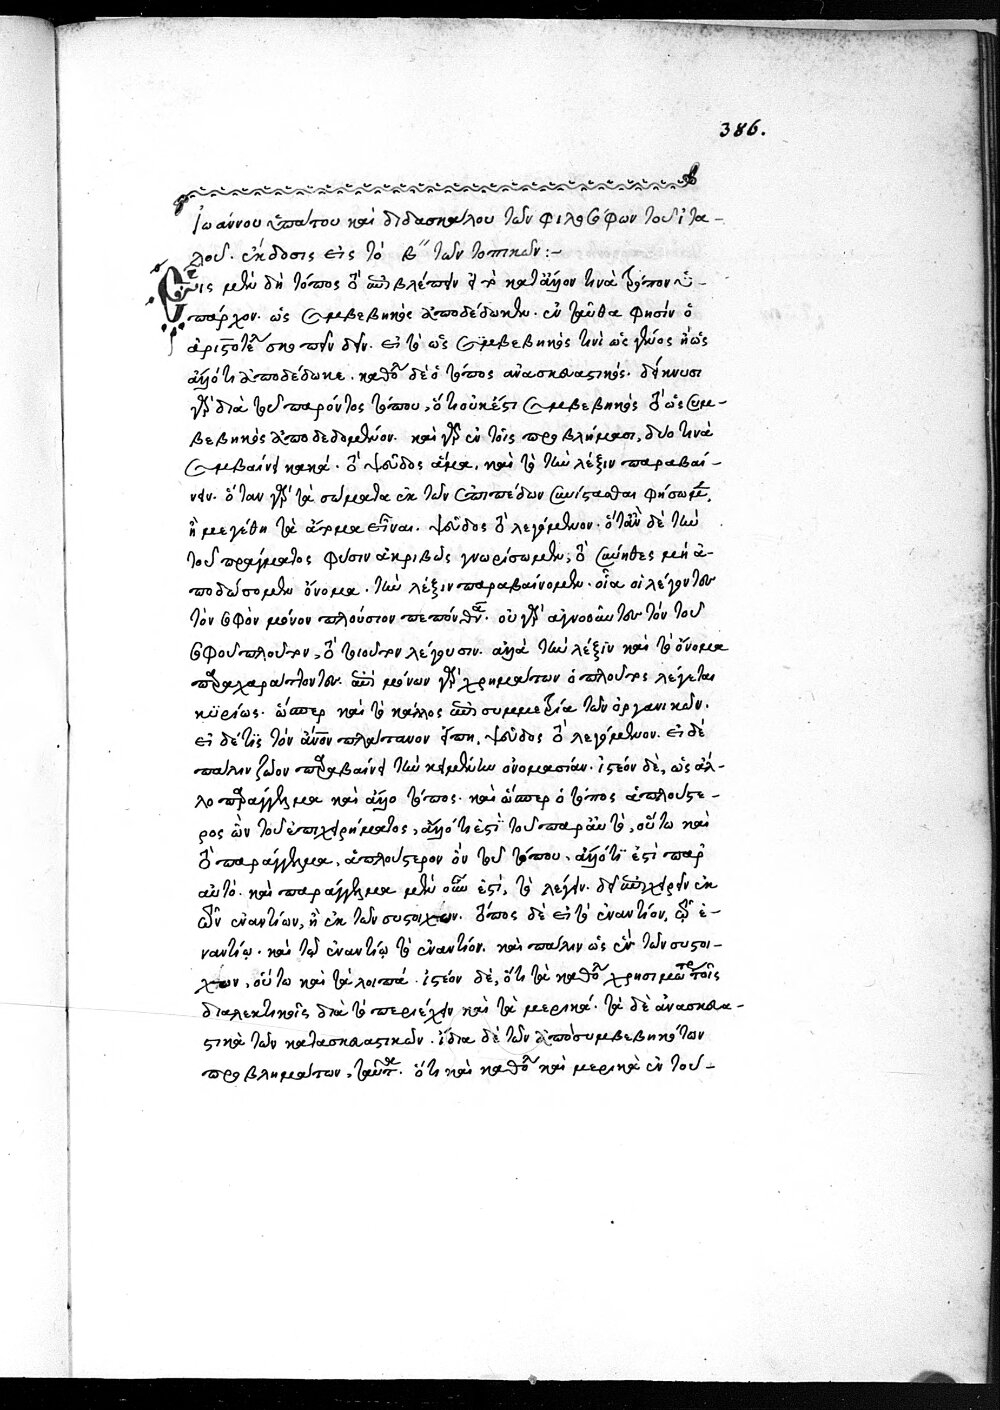 386.
Ἰωάννου ὑπάτου καὶ διδασκάλου τῶν φιλοσόφων τοῦ ἰτα-
λοῦ. ἔκδοσις εἰς τὸ β´´ τῶν τοπικῶν:-
Εἷς μὲν δὴ τόπος τὸ ἐπιβλέπειν εἰ τὸ κατ' ἄλλον τινὰ τρόπον ὑ-
πάρχον. ὡς συμβεβηκὸς ἀποδέδωκεν. ἐνταῦθα φησὶν ὁ
ἀριστοτέλης σκοπεῖν δεῖν. εἰ τὸ ὡς συμβεβηκός τινι ὡς γένος ἢ ὡς
ἄλλό τι ἀποδέδωκε. καθόλου δὲ ὁ τόπος ἀνασκευαστικός. δείκνυσι
γὰρ διὰ τοῦ παρόντος τόπου, ὅτι οὐκ ἔστι συμβεβηκὸς τὸ ὡς συμ-
βεβηκὸς ἀποδεδομένον. καὶ γὰρ ἐν τοῖς προβλήμασι, δύο τινὰ
συμβαίνει κακά. τὸ ψεῦδος ἅμα, καὶ τὸ τὴν λέξιν παραβαί-
νειν. ὅταν γὰρ τὰ σώματα ἐκ τῶν ἐπιπέδων συνίστασθαι φήσωμεν,
ἢ μεγέθη τὰ ἄτομα εἶναι. ψεῦδος τὸ λεγόμενον. ὅταν δὲ τὴν
τοῦ πράγματος φύσιν ἀκριβῶς γνωρίσωμεν, τὸ σύνηθες μὴ ἀ-
ποδώσομεν ὄνομα. τὴν λέξιν παραβαίνομεν. οἷα οἱ λέγοντες
τὸν σοφὸν μόνον πλούσιον πεπόνθασιν. οὐ γὰρ ἀγνοοῦντες τὸν τοῦ
σοφοῦ πλοῦτον, τὸ τοιοῦτον λέγουσιν. ἀλλὰ τὴν λέξιν καὶ τὸ ὄνομα
παραχαράττοντες. ἐπὶ μόνων γὰρ χρημάτων ὁ πλοῦτος λέγεται
κυρίως. ὥσπερ καὶ τὸ κάλλος ἐπὶ συμμετρία τῶν ὀργανικῶν.
εἰ δέ τις τὸν ἄνθρωπον πλάτανον εἴπῃ, ψεῦδος τὸ λεγόμενον. εἰ δὲ
πάλιν ζῶον παραβαίνει τὴν κειμένην ὀνομασίαν. ἰστέον δὲ, ὡς ἄλ-
λο παράγγελμα καὶ ἄλλο τόπος. καὶ ὥσπερ ὁ τόπος ἁπλούστε-
ρος ὢν τοῦ ἐπιχειρήματος, ἄλλό τι ἐστὶ τοῦ παρ' αὐτὸ, οὕτω καὶ
τὸ παράγγελμα, ἁπλούστερον ὂν τοῦ τόπου, ἄλλό τι ἐστὶ παρ'
αὐτό. καὶ παράγγελμα μὲν οὖν ἐστὶ, τὸ λέγειν. δεῖ ἐπιχειρεῖν ἐκ
τῶν ἐναντίων, ἢ ἐκ τῶν συστοίχων. τόπος δὲ εἰ τὸ ἐναντίον, τῷ ἐ-
ναντίῳ. καὶ τῷ ἐναντίῳ τὸ ἐναντίον. καὶ πάλιν ὡς ἓν τῶν συστοί-
χων, οὕτω καὶ τὰ λοιπά. ἰστέον δὲ, ὅτι τὰ καθόλου χρησιμώτερα τοῖς
διαλεκτικοῖς διὰ τὸ περιέχειν καὶ τὰ μερικά. τὰ δὲ ἀνασκευα-
στικὰ τῶν κατασκευαστικῶν. ἴδια δὲ τῶν ἀπὸ συμβεβηκότων
προβλημάτων, ταῦτα. ὅτι καὶ καθόλου καὶ μερικὰ ἐν τού-